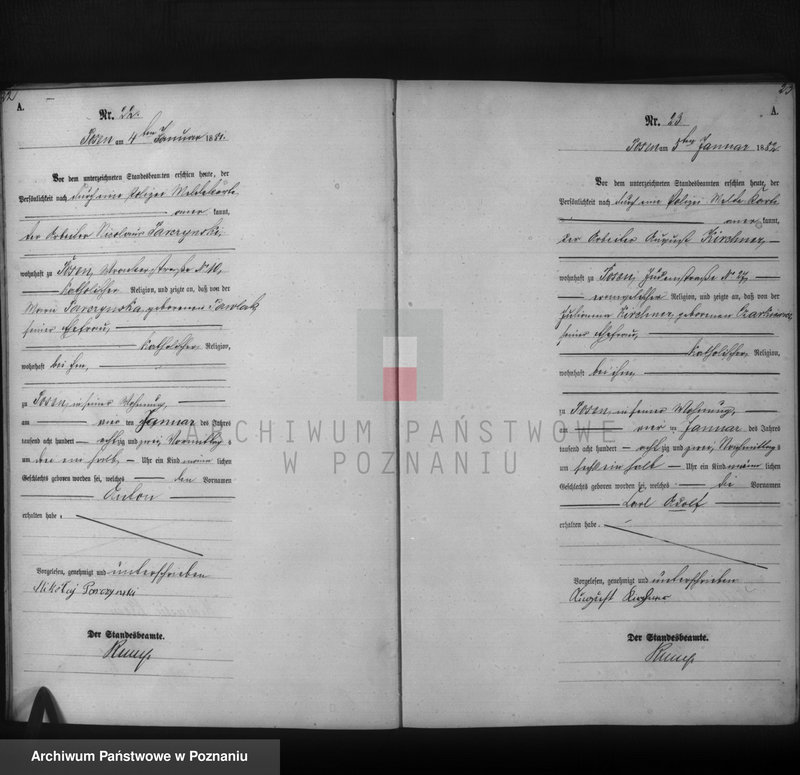 22
A.
Nr. 22.
Posen am 4ten Januar 1882.
Vor dem unterzeichneten Standesbeamten erschien heute, der
Persönlichkeit nach durch eine Polizei Meldekarte
kannt,
der Arbeiter Nicolaus Parczynski,
wohnhaft zu Posen, No 10,
katholischer Religion, und zeigte an, daß von der
Maria Parczynska, geborenen Pawlak,
seiner Ehefrau,
katholischer Religion,
wohnhaft bei ihm,
zu Posen, in seiner Wohnung,
am vier ten Januar des Jahres
tausend acht hundert acht zig und zwei, Vormittags
um drei ein halb Uhr ein Kind männ lichen
Geschlechts geboren worden sei, welches den Vornamen
Anton
erhalten habe.
Vorgelesen, genehmigt und unterschrieben
Mikołaj Parczynski
Der Standesbeamte.
23
A.
Nr. 23
Posen am 5ten Januar 1882
Vor dem unterzeichneten Standesbeamten erschien heute, der
Persönlichkeit nach durch eine Polizei Melde Karte
kannt,
der Arbeiter August Kirchner,
wohnhaft zu Posen, Judenstraße No 27,
evangelischer Religion, und zeigte an, daß von der
Julianna Kirchner, geborenen
seiner Ehefrau,
katholischer Religion,
wohnhaft bei ihm,
zu Posen, in seiner Wohnung,
am vier ten Januar des Jahres
tausend acht hundert acht zig und zwei, Nachmittags
um sechs ein halb Uhr ein Kind männ lichen
Geschlechts geboren worden sei, welches die Vornamen
Carl Adolf
erhalten habe.
Vorgelesen, genehmigt und unterschrieben
August Kirchner
Der Standesbeamte.
ARCHIWUM PAŃSTWOWE
W POZNANIU
Archiwum Państwowe w Poznaniu